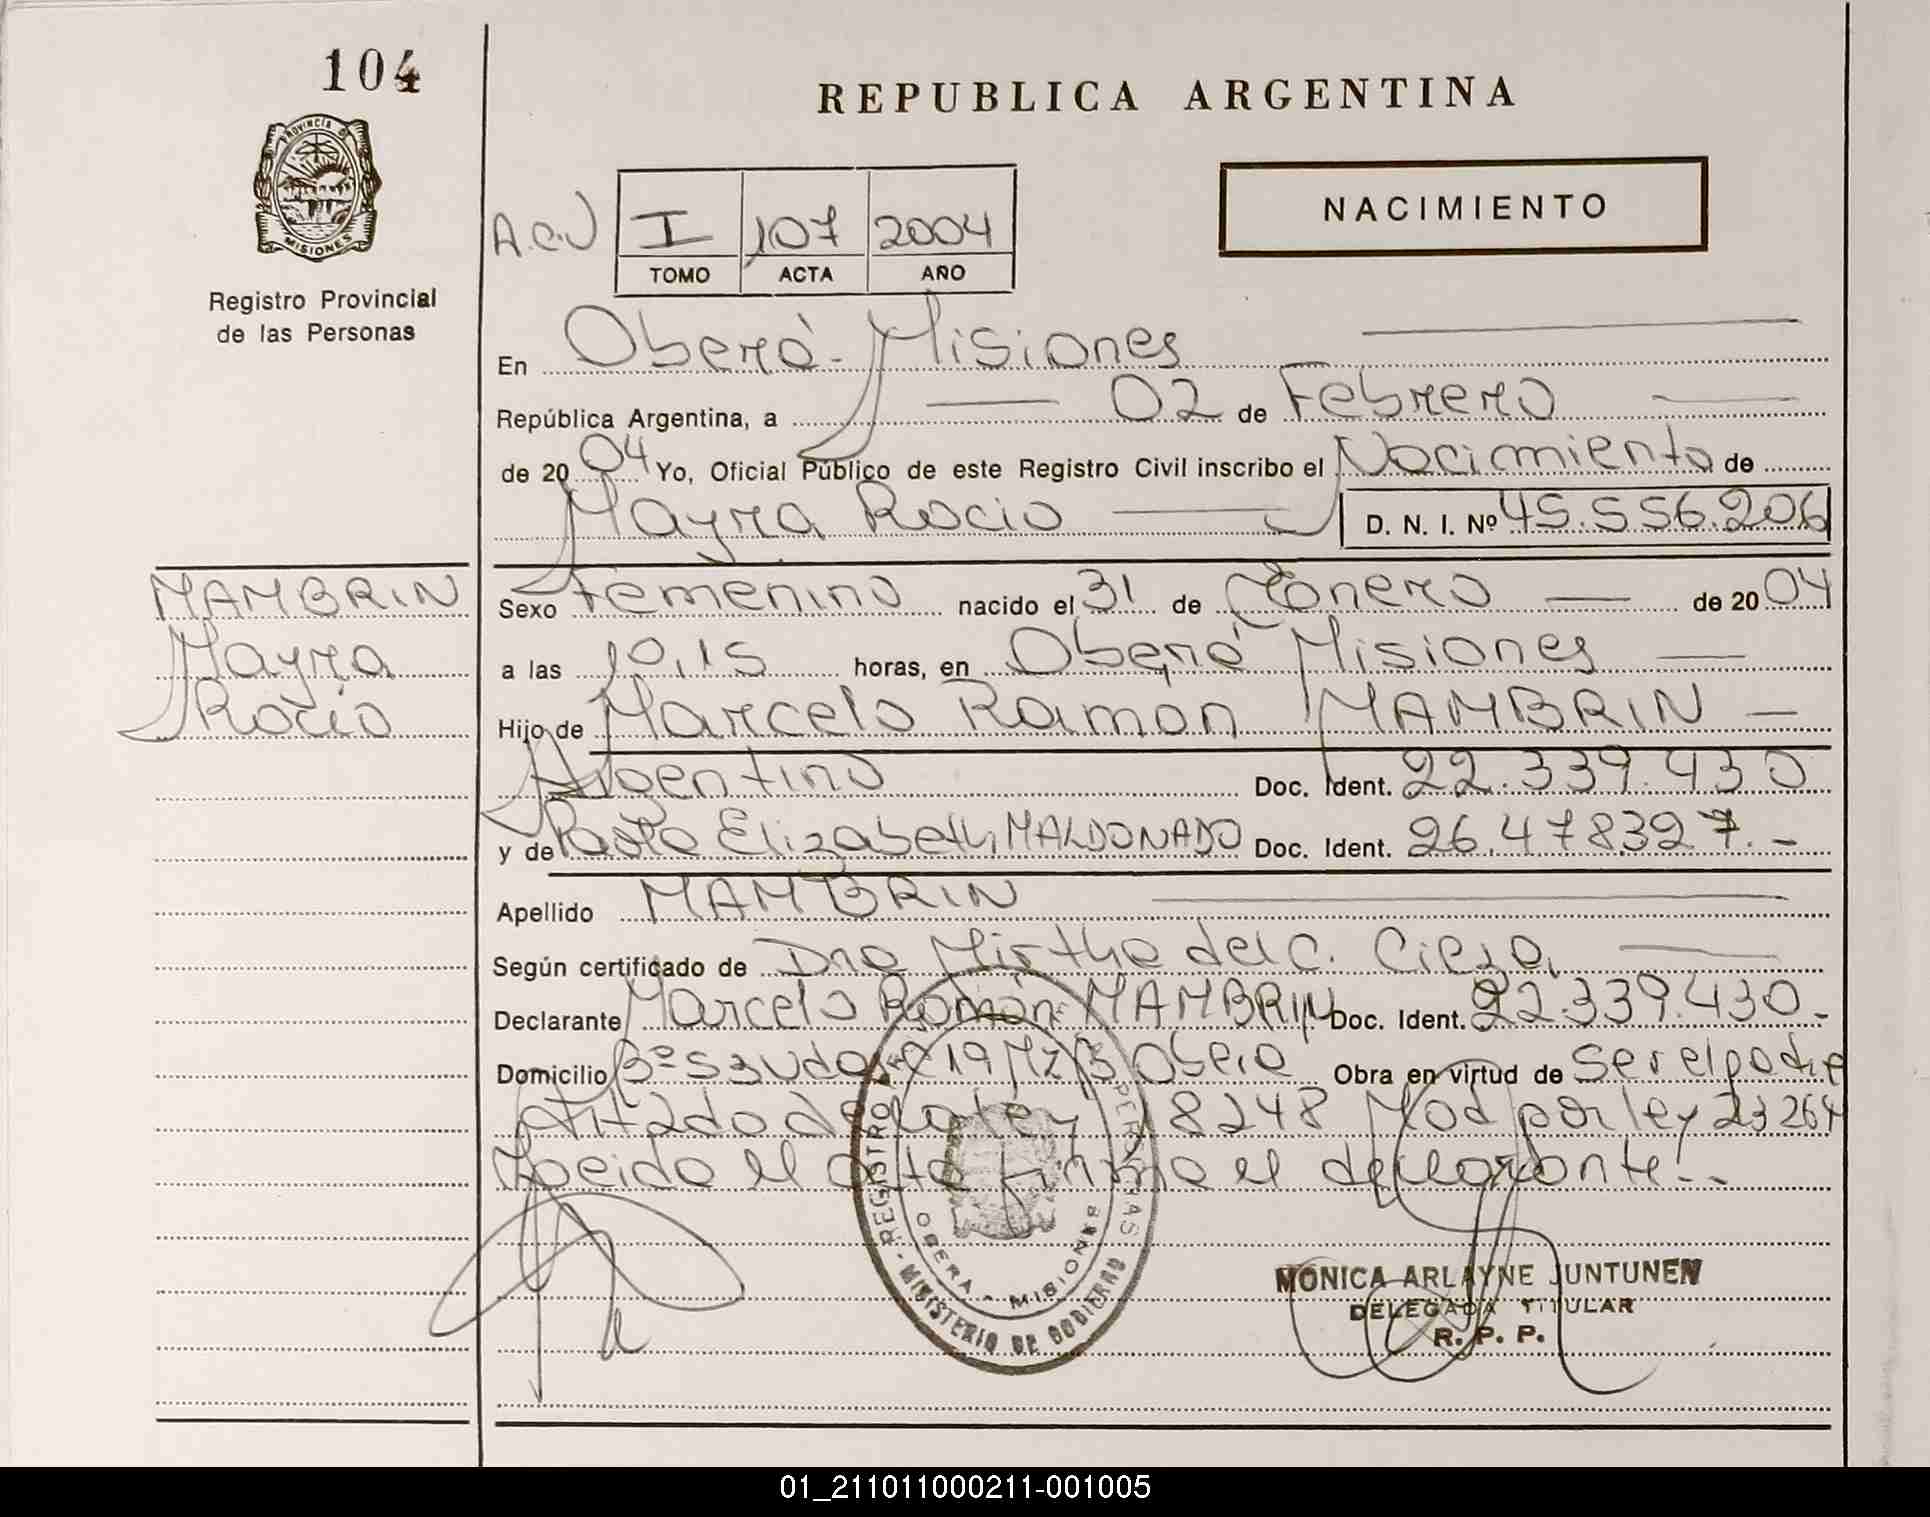 104
REPUBLICA ARGENTINA
PROVINCIA DE
MISIONES
Registro Provincial
de las Personas
NACIMIENTO
A.C.V
I 107 2004
TOMO ACTA AÑO
En Oberá - Misiones
República Argentina, a 02 de Febrero
de 20 04 Yo, Oficial Público de este Registro Civil inscribo el Nacimiento de
Mayra Rocio D. N. I. Nº 45.556.206
MAMBRIN
Mayra
Rocio
Sexo Femenino nacido el 31 de Enero de 20 04
a las 10,15 horas, en Oberá Misiones
Hijo de Marcelo Ramon MAMBRIN
Argentino Doc. Ident. 22.339.430
y de Paola Elizabeth MALDONADO Doc. Ident. 26.478327.-
Apellido MAMBRIN
Según certificado de Dra Mirtha del C. Cieza
Declarante Marcelo Ramón MAMBRIN Doc. Ident. 22.339.430.-
Domicilio Bº 193 Mz B Oberá Obra en virtud de ser el padre
de la ley 18248 Mod por ley 23264
Leida el acta firma el declarante.-
REGISTRO DE PERSONAS
OBERA - MISIONES
MINISTERIO DE GOBIERNO
MONICA ARLAYNE JUNTUNEN
DELEGADA TITULAR
R. P. P.
01_211011000211-001005